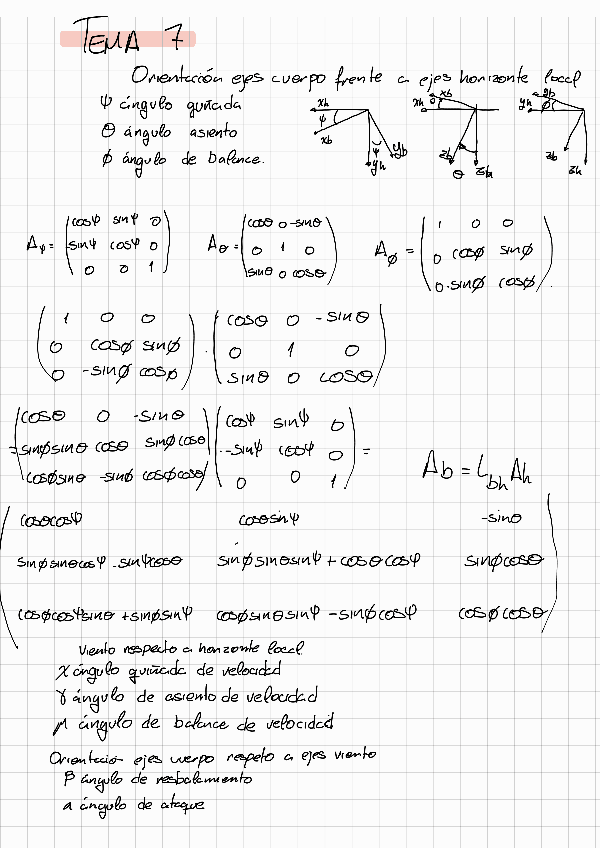 TEMA 7
Orientación ejes cuerpo frente a ejes horizonte local
ψ ángulo guiñada
θ ángulo asiento
ϕ ángulo de balance.
xh ψ xb ψ yh yb
xh θ xb zb θ zh
yh ϕ yb zb zh
Aψ = (cosψ sinψ 0 Aθ = (cosθ 0 -sinθ Aϕ = (1 0 0
sinψ cosψ 0 0 1 0 0 cosϕ sinϕ
0 0 1) sinθ 0 cosθ) 0 -sinϕ cosϕ).
(1 0 0 (cosθ 0 -sinθ
0 cosϕ sinϕ . 0 1 0
0 -sinϕ cosϕ) sinθ 0 cosθ)
(cosθ 0 -sinθ (cosψ sinψ 0
= sinϕsinθ cosθ sinϕcosθ -sinψ cosψ 0 =
cosϕsinθ -sinϕ cosϕcosθ) 0 0 1)
Ab = L bh Ah
(cosθcosψ cosθsinψ -sinθ
sinϕsinθcosψ - sinψcosθ sinϕsinθsinψ + cosθcosψ sinϕcosθ
cosϕcosψsinθ + sinϕsinψ cosϕsinθsinψ - sinϕcosψ cosϕcosθ)
Viento respecto a horizonte local
χ ángulo guiñada de velocidad
γ ángulo de asiento de velocidad
μ ángulo de balance de velocidad
Orientacio ejes cuerpo respeto a ejes viento
β angulo de resbalamiento
a ángulo de ataque